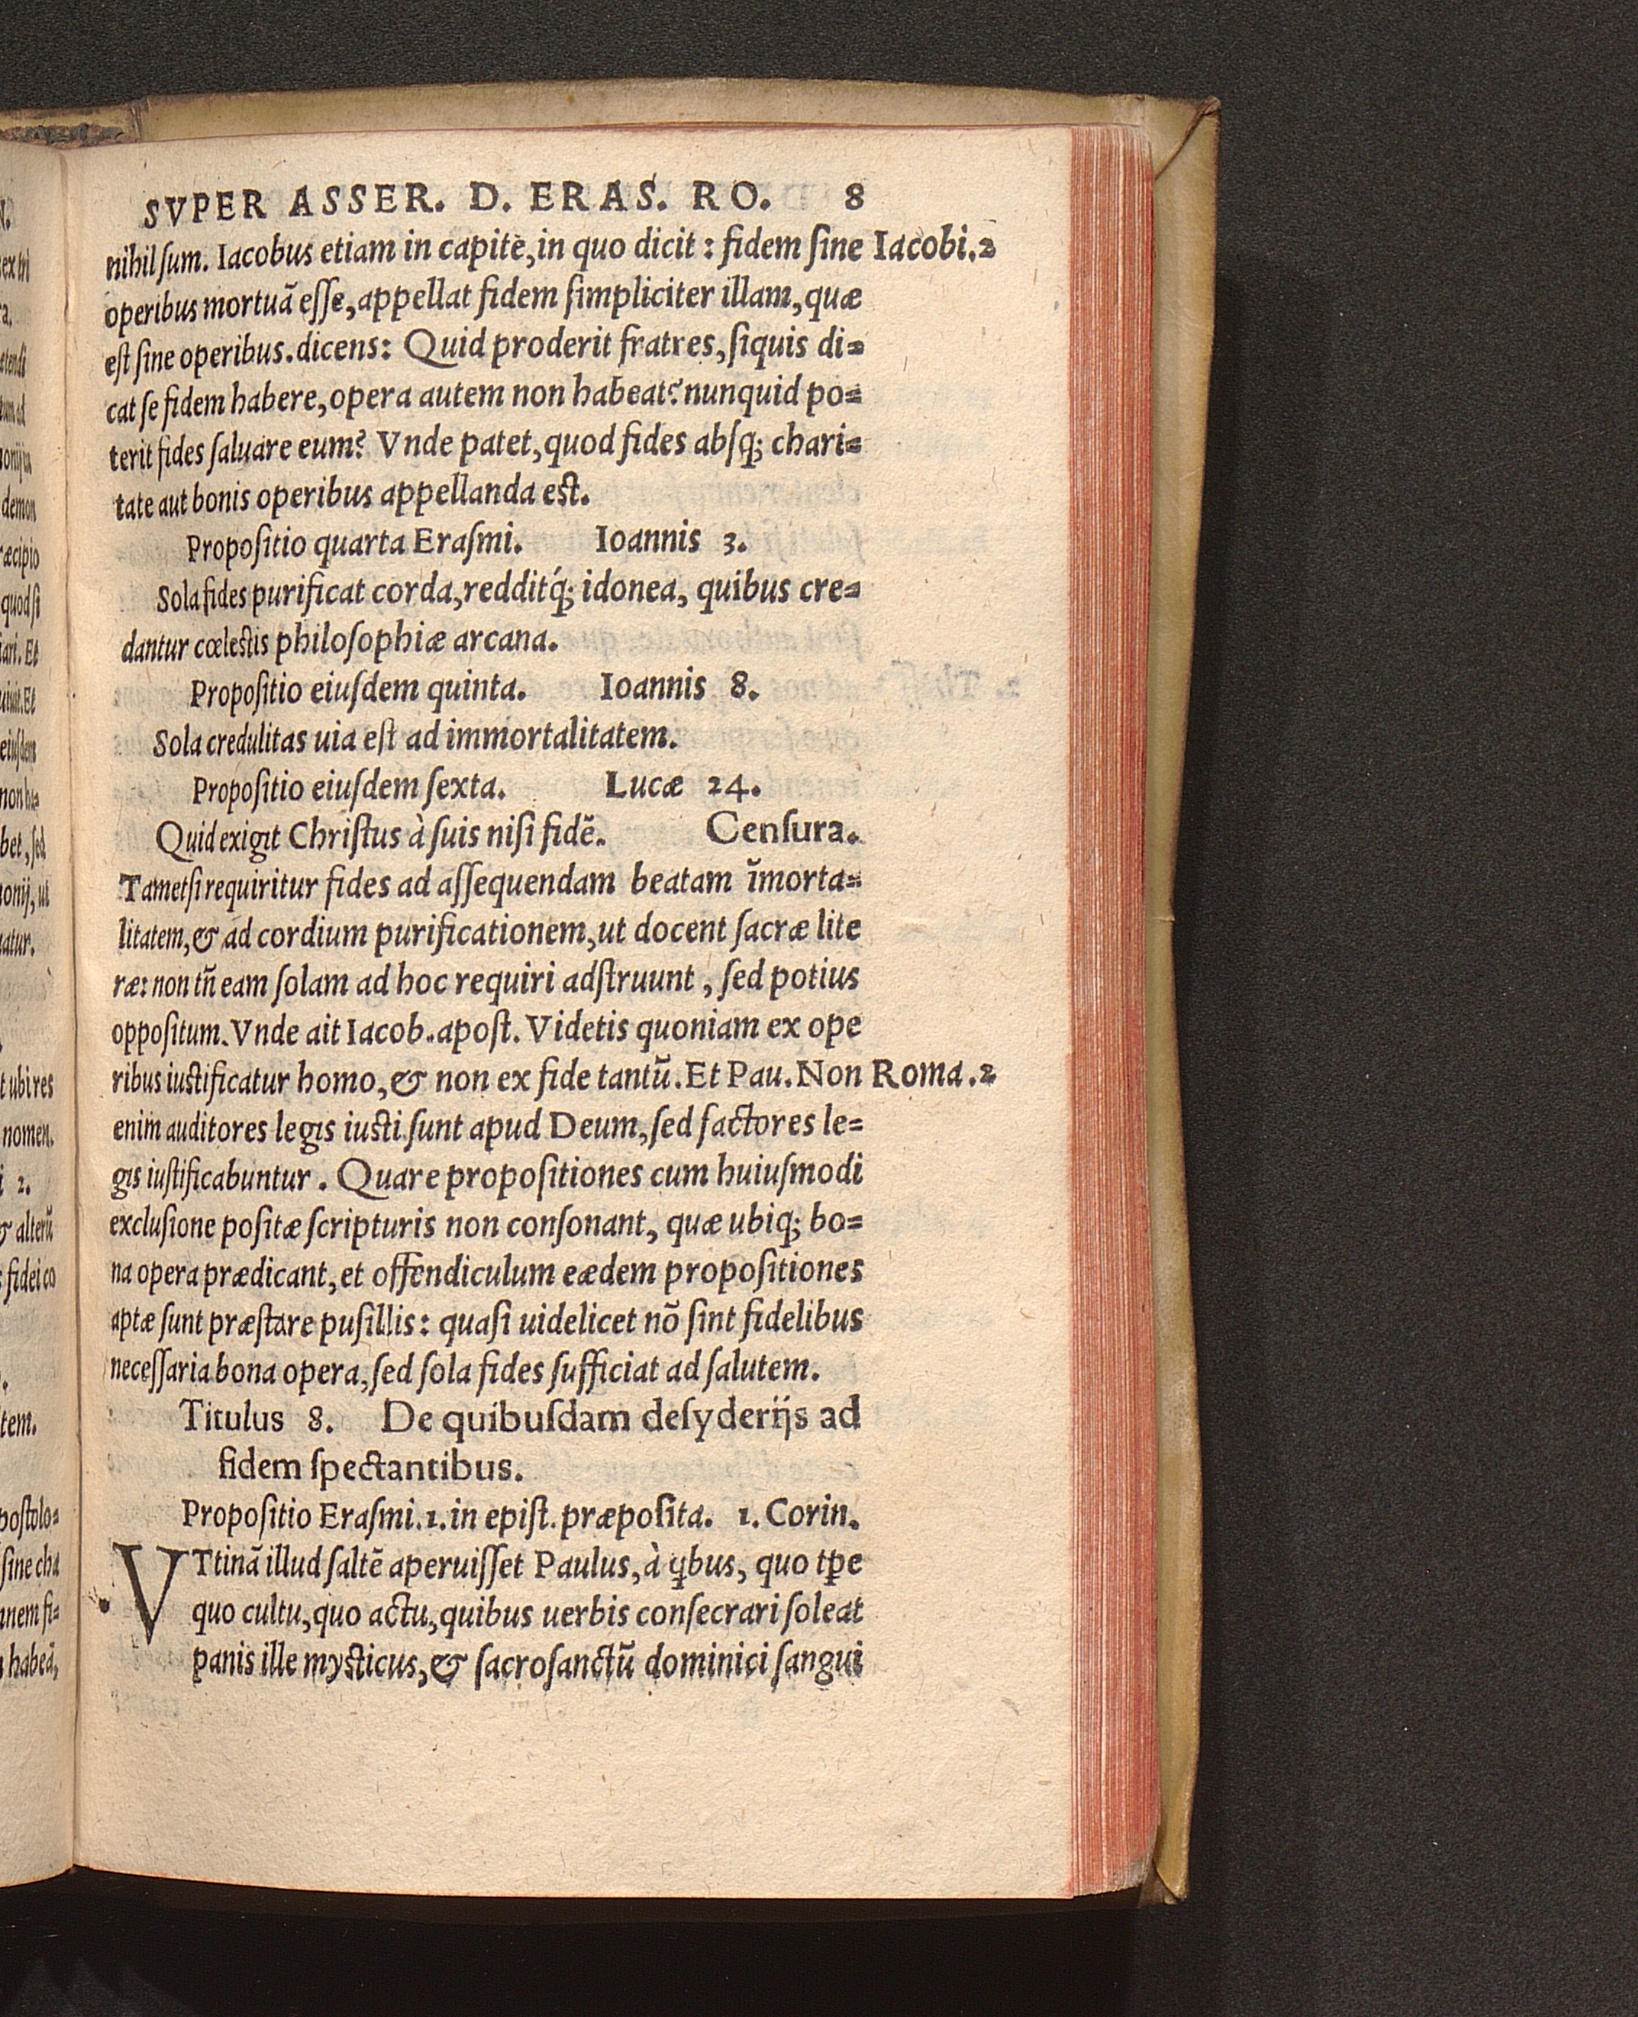 SVPER ASSER. D. ERAS. RO. 8
nihil ſum. Iacobus etiam in capite, in quo dicit : fidem ſine Iacobi.2
operibus mortuã eſſe, appellat fidem ſimpliciter illam, quæ
eſt ſine operibus. dicens: Quid proderit fratres, ſiquis di=
cat ſe fidem habere, opera autem non habeat? nunquid po=
terit fides ſaluare eum? Vnde patet, quod fides abſq; chari=
tate aut bonis operibus appellanda eſt.
Propoſitio quarta Eraſmi. Ioannis 3.
Sola fides purificat corda, redditq́; idonea, quibus cre=
dantur cœleſtis philoſophiæ arcana.
Propoſitio eiuſdem quinta. Ioannis 8.
Sola credulitas uia eſt ad immortalitatem.
Propoſitio eiuſdem ſexta. Lucæ 24.
Quid exigit Chriſtus à ſuis niſi fidẽ. Cenſura.
Tametſi requiritur fides ad aſſequendam beatam ĩmorta=
litatem, & ad cordium purificationem, ut docent ſacræ lite
ræ: non tñ eam ſolam ad hoc requiri adſtruunt, ſed potius
oppoſitum. Vnde ait Iacob. apoſt. Videtis quoniam ex ope
ribus iuſtificatur homo, & non ex fide tantũ. Et Pau. Non Roma.2
enim auditores legis iuſti ſunt apud Deum, ſed factores le=
gis iuſtificabuntur. Quare propoſitiones cum huiuſmodi
excluſione poſitæ ſcripturis non conſonant, quæ ubiq; bo=
na opera prædicant, et offendiculum eædem propoſitiones
aptæ ſunt præſtare puſillis: quaſi uidelicet nõ ſint fidelibus
neceſſaria bona opera, ſed ſola fides ſufficiat ad ſalutem.
Titulus 8. De quibuſdam deſyderijs ad
fidem ſpectantibus.
Propoſitio Eraſmi.1.in epiſt. præpoſita. 1. Corin.
VTtinã illud ſaltẽ aperuiſſet Paulus, à ꝗbus, quo tꝑe
quo cultu, quo actu, quibus uerbis conſecrari ſoleat
panis ille myſticus, & ſacroſanctũ dominici ſangui